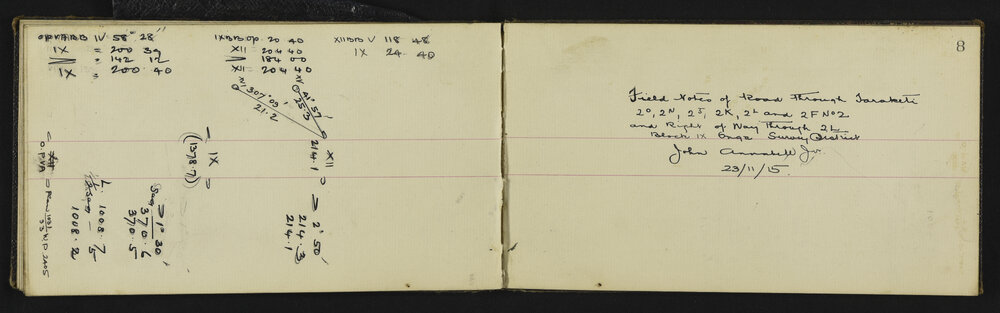 IV 58° 28'
IX " 200 39
" 142 12
IX " 200 40
IX 20 40
XII 204 40
184 00
XII 204 40
V 118 48
IX 24 40
307° 09'
21.2
41° 57'
25.3
XII
214.1
2° 50'
214.3
214.1
IX
(1378.7)
1° 30'
370.6
370.5
L. 1008.7
- 5
1008.2
8
Field Notes of Road Through Taraketi
2O, 2N, 2J, 2K, 2L and 2F No 2
and Right of Way Through 2L
Block IX Onga Survey District
John Annabell Jr.
23/11/15